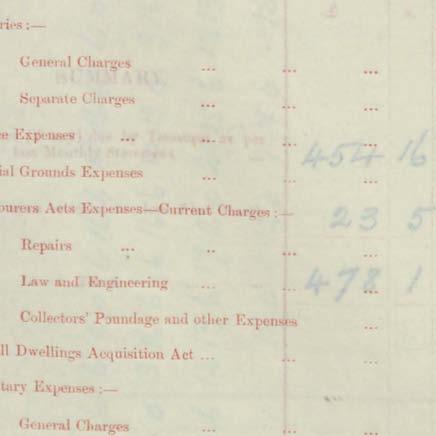 ries :—
General Charges ... ... ...
SUMMARY
Separate Charges ... ... ...
ce Expenses ... ... ... ...
454 16
ial Grounds Expenses ... ... ...
ourers Acts Expenses—Current Charges :—
23 5
Repairs ... .. ... ...
Law and Engineering ... ... ...
478 1
Collectors' Poundage and other Expenses ...
ll Dwellings Acquisition Act ... ... ...
tary Expenses :—
General Charges ... ... ...